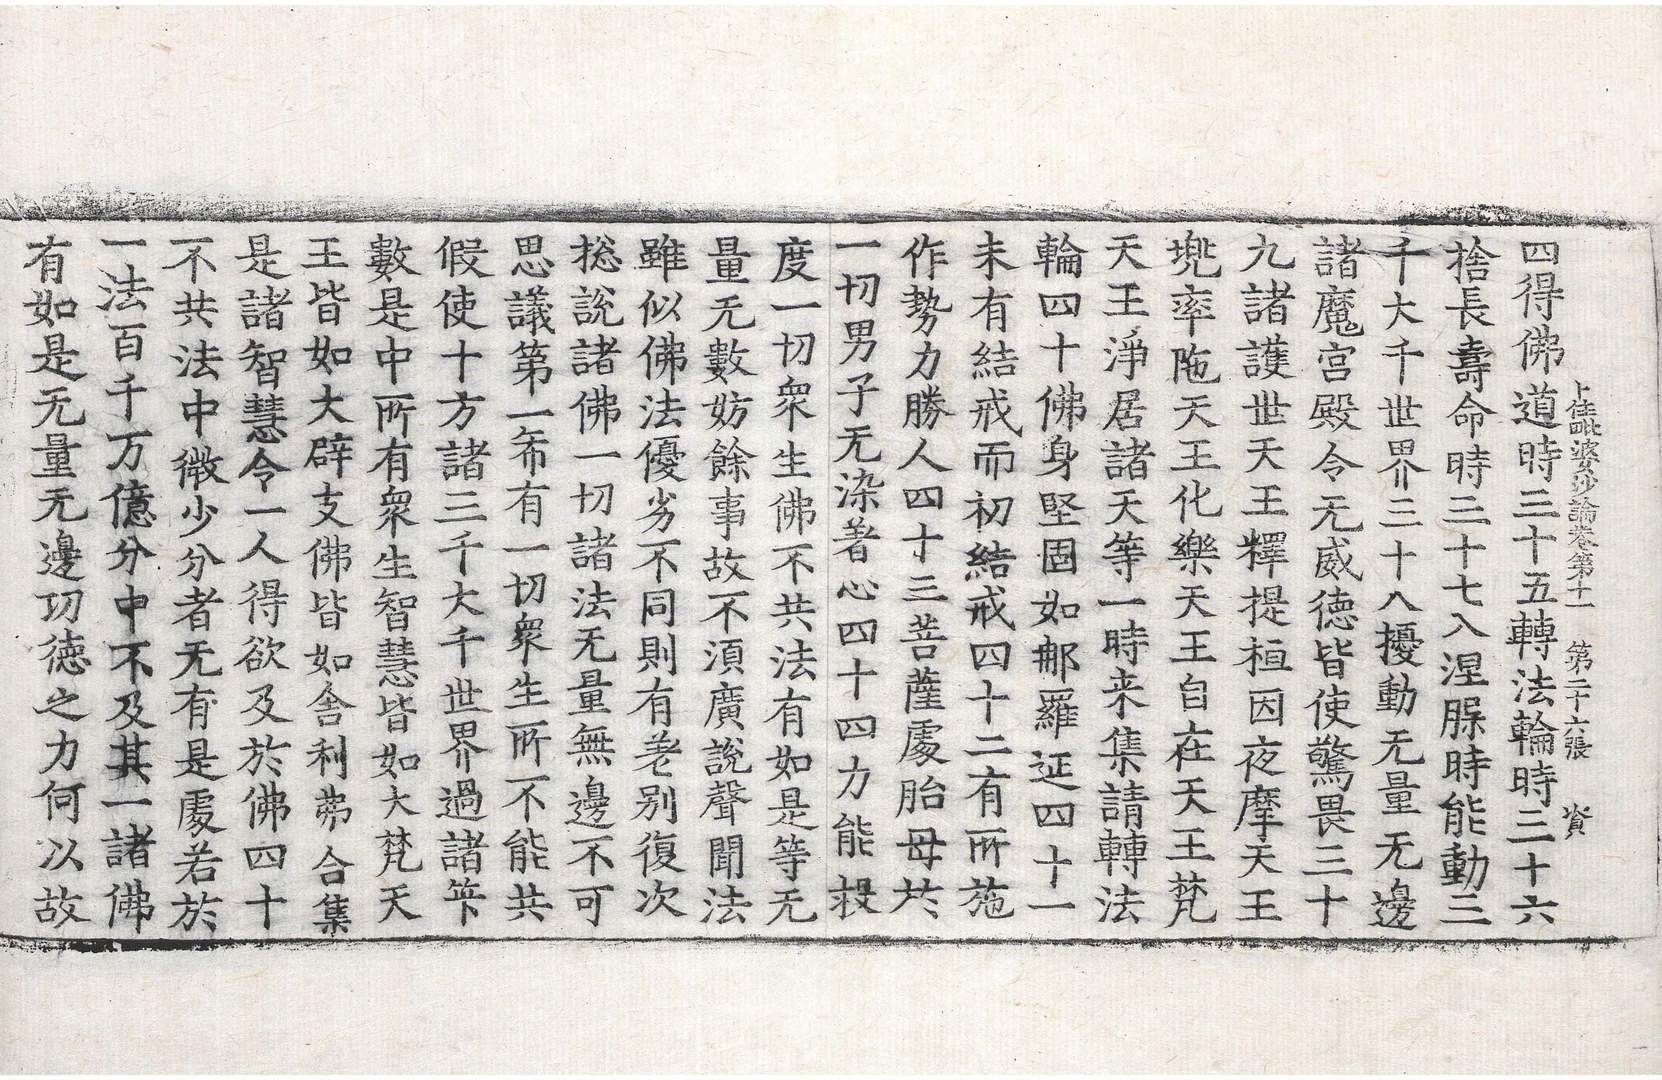 十住毗婆沙論卷第十一 第二十六張 資
四得佛道時三十五轉法輪時三十六
捨長壽命時三十七入涅脲時能動三
千大千世界三十八擾動无量无邊
諸魔宮殿令无威德皆使驚畏三十
九諸護世天王釋提桓因夜摩天王
兜率陁天王化樂天王自在天王梵
天王淨居諸天等一時来集請轉法
輪四十佛身堅固如那羅延四十一
未有結戒而初結戒四十二有所施
作勢力勝人四十三菩薩處胎母於
一切男子无染著心四十四力能救
度一切衆生佛不共法有如是等无
量无數妨餘事故不湏廣說聲聞法
雖似佛法優劣不同則有差别復次
揔說諸佛一切諸法无量無邊不可
思議第一希有一切衆生所不能共
假使十方諸三千大千世界過諸筭
數是中所有衆生智慧皆如大梵天
王皆如大辟支佛皆如舍利弗合集
是諸智慧令一人得欲及於佛四十
不共法中微少分者无有是處若於
一法百千万億分中不及其一諸佛
有如是无量无邊功德之力何以故